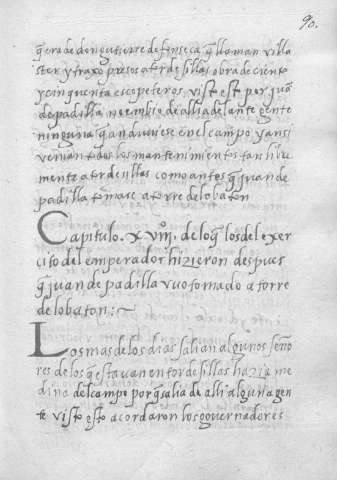 90.
q̃ era de don gutierre de fonseca q̃ llaman villa
ster y traxo presos a tordesillas obra de ciento
y cinquenta escopeteros. visto esto por juã
de padilla no embio de alli adelante gente
ninguna que anduviese en el campo y ansi
venian todos los mantenimientos tan libre
mente a tordesillas como antes q̃ juan de
padilla tomase a torre de lobaton
Capitulo. x viij. de lo q̃ los del exer
cito del emperador hizieron despues
q̃ juan de padilla vuo tomado a torre
de lobaton: ~
Los mas de los dias salian algunos seño
res de los q̃ estavan en tordesillas hazia me
dina del campo por q̃ salia de alli alguna gen
te visto esto acordaron los governadores